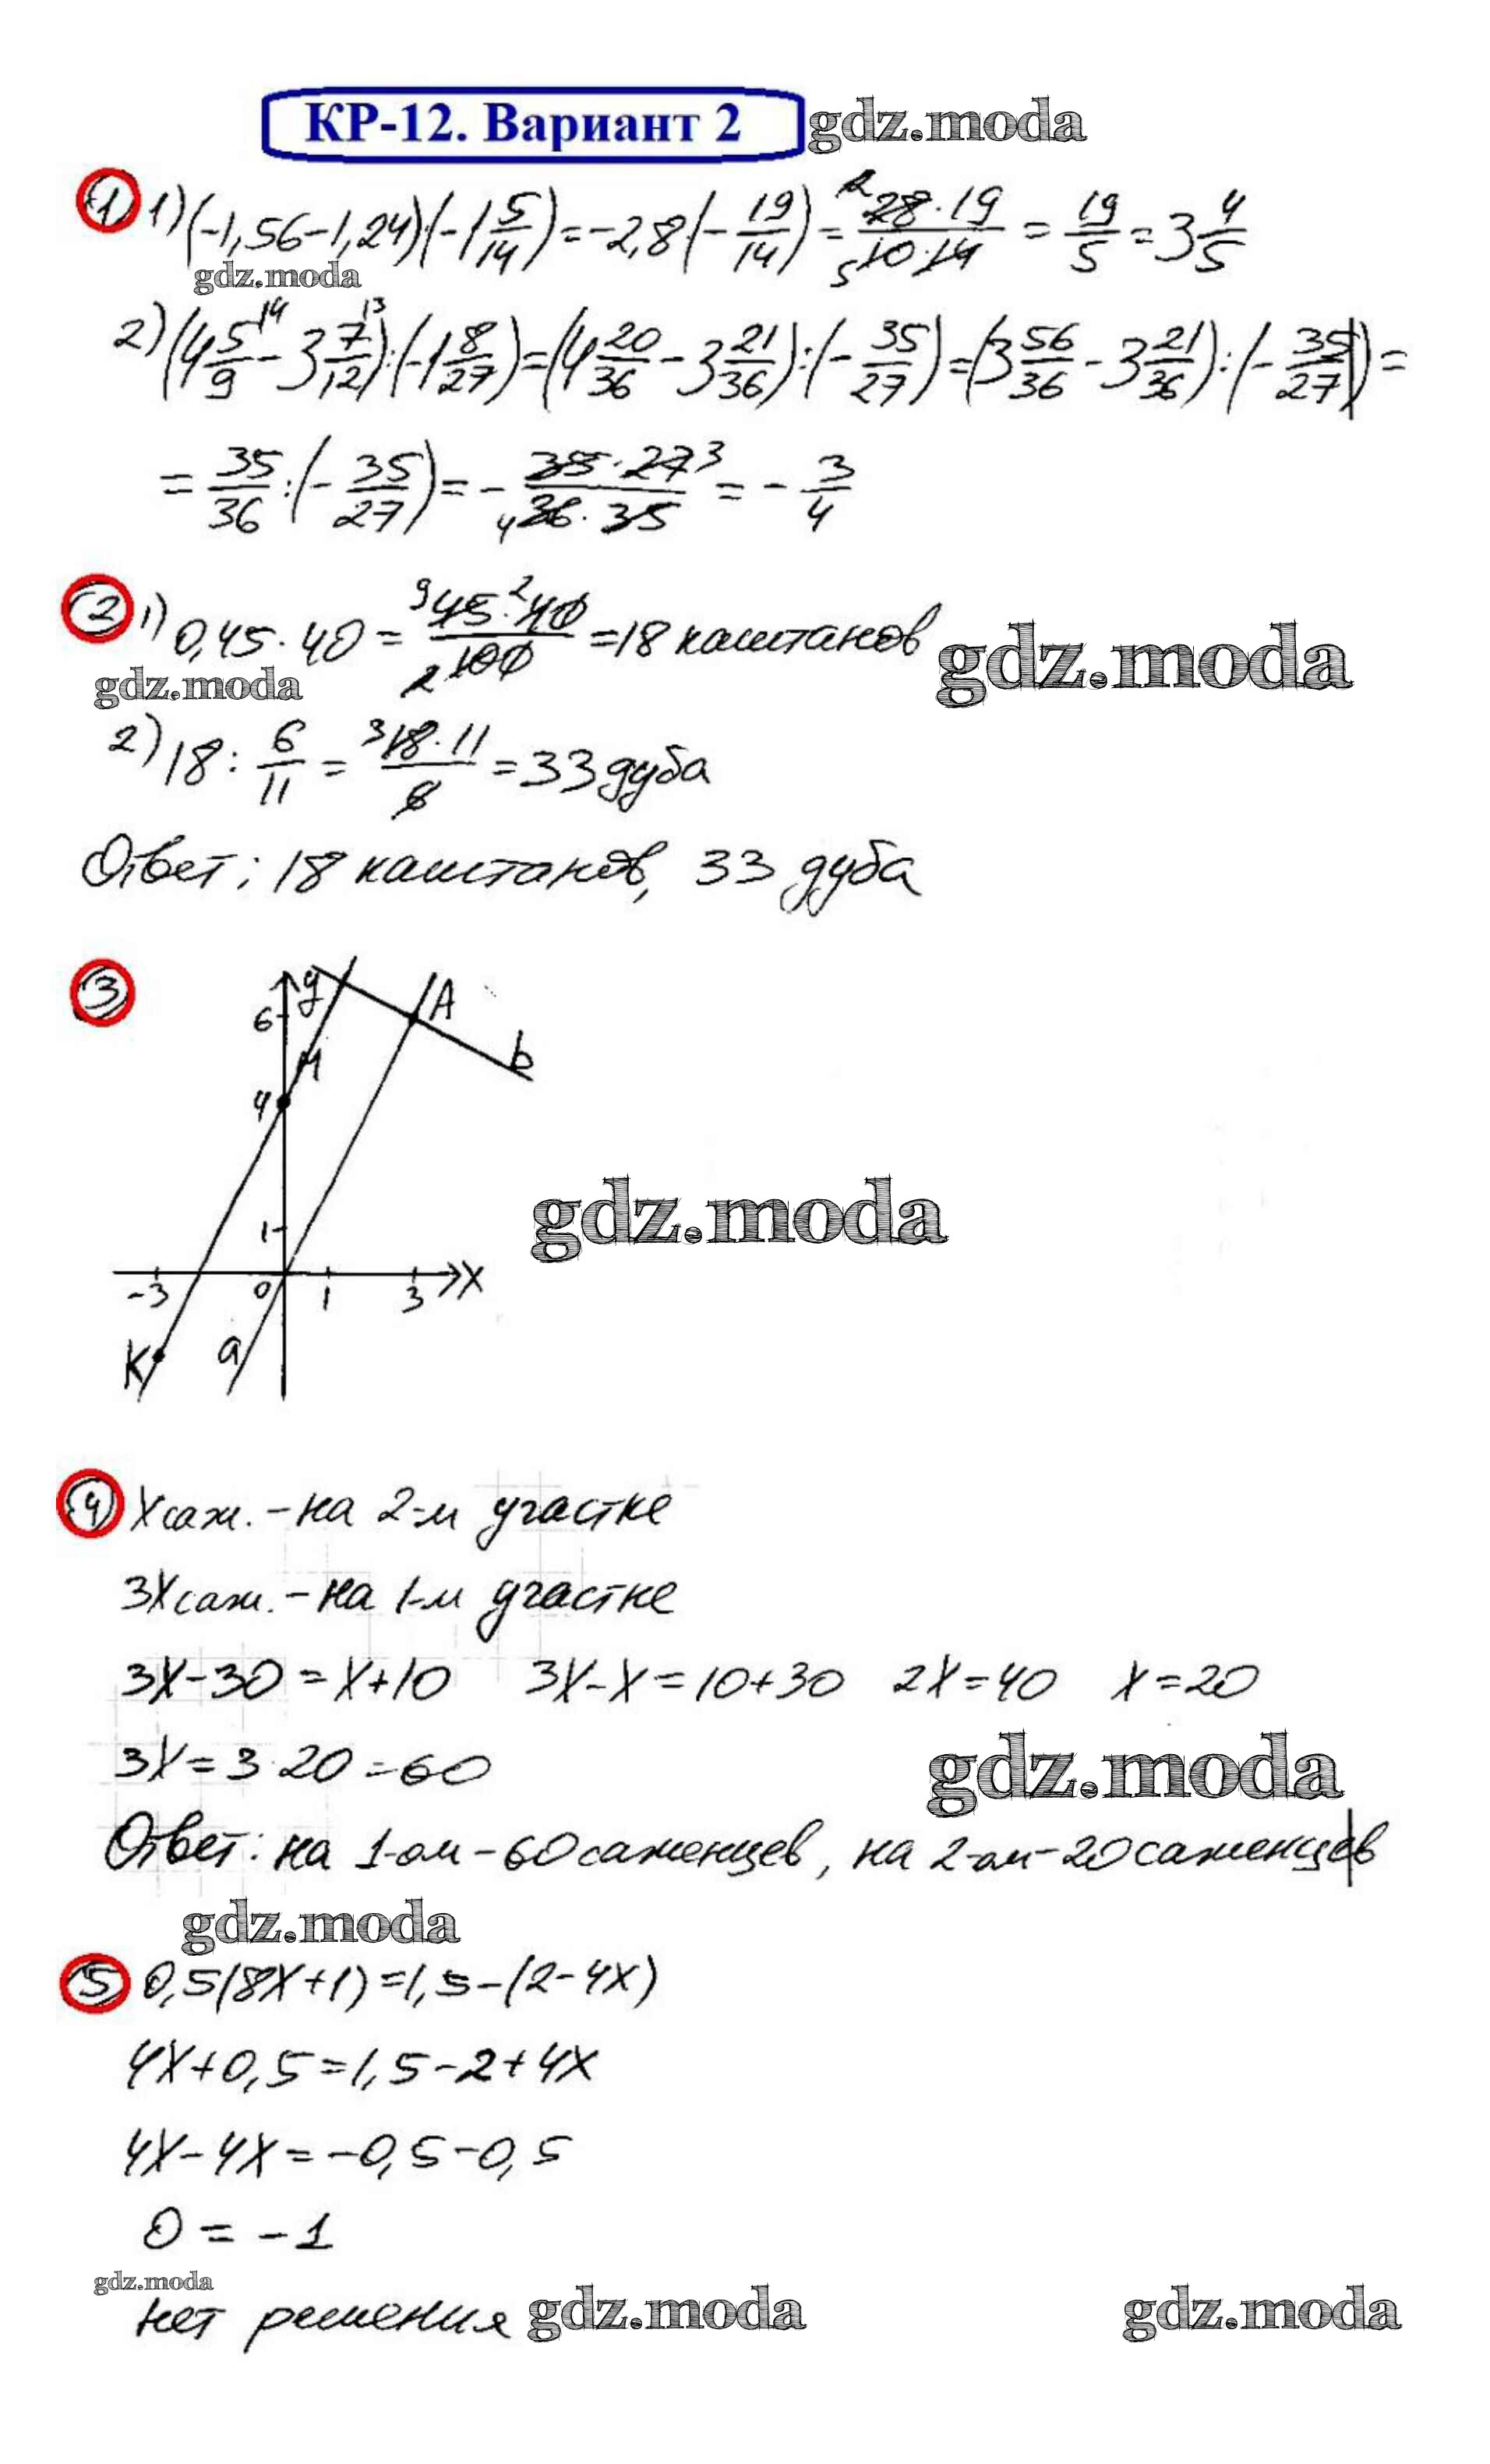 КР-12. Вариант 2 gdz.moda
1 1) (-1,56-1,24)·(-1 5/14) = -2,8·(-19/14) = 28·19/10·14 = 19/5 = 3 4/5
gdz.moda
2) (4 5/9 - 3 7/12):(-1 8/27) = (4 20/36 - 3 21/36):(-35/27) = (3 56/36 - 3 21/36):(-35/27) =
= 35/36:(-35/27) = - 35·27/36·35 = - 3/4
2 1) 0,45·40 = 45·40/100 = 18 каштанов
gdz.moda
gdz.moda
2) 18 : 6/11 = 18·11/6 = 33 дуба
Ответ: 18 каштанов, 33 дуба
3
y
A
6
b
M
4
gdz.moda
1
-3 0 1 3 X
K a
4 X саж. - на 2-м участке
3X саж. - на 1-м участке
3X-30=X+10 3X-X=10+30 2X=40 X=20
3X=3·20=60
gdz.moda
Ответ: на 1-ом-60 саженцев, на 2-ом-20 саженцев
gdz.moda
5 0,5(8X+1)=1,5-(2-4X)
4X+0,5=1,5-2+4X
4X-4X=-0,5-0,5
0=-1
gdz.moda
нет решения gdz.moda gdz.moda